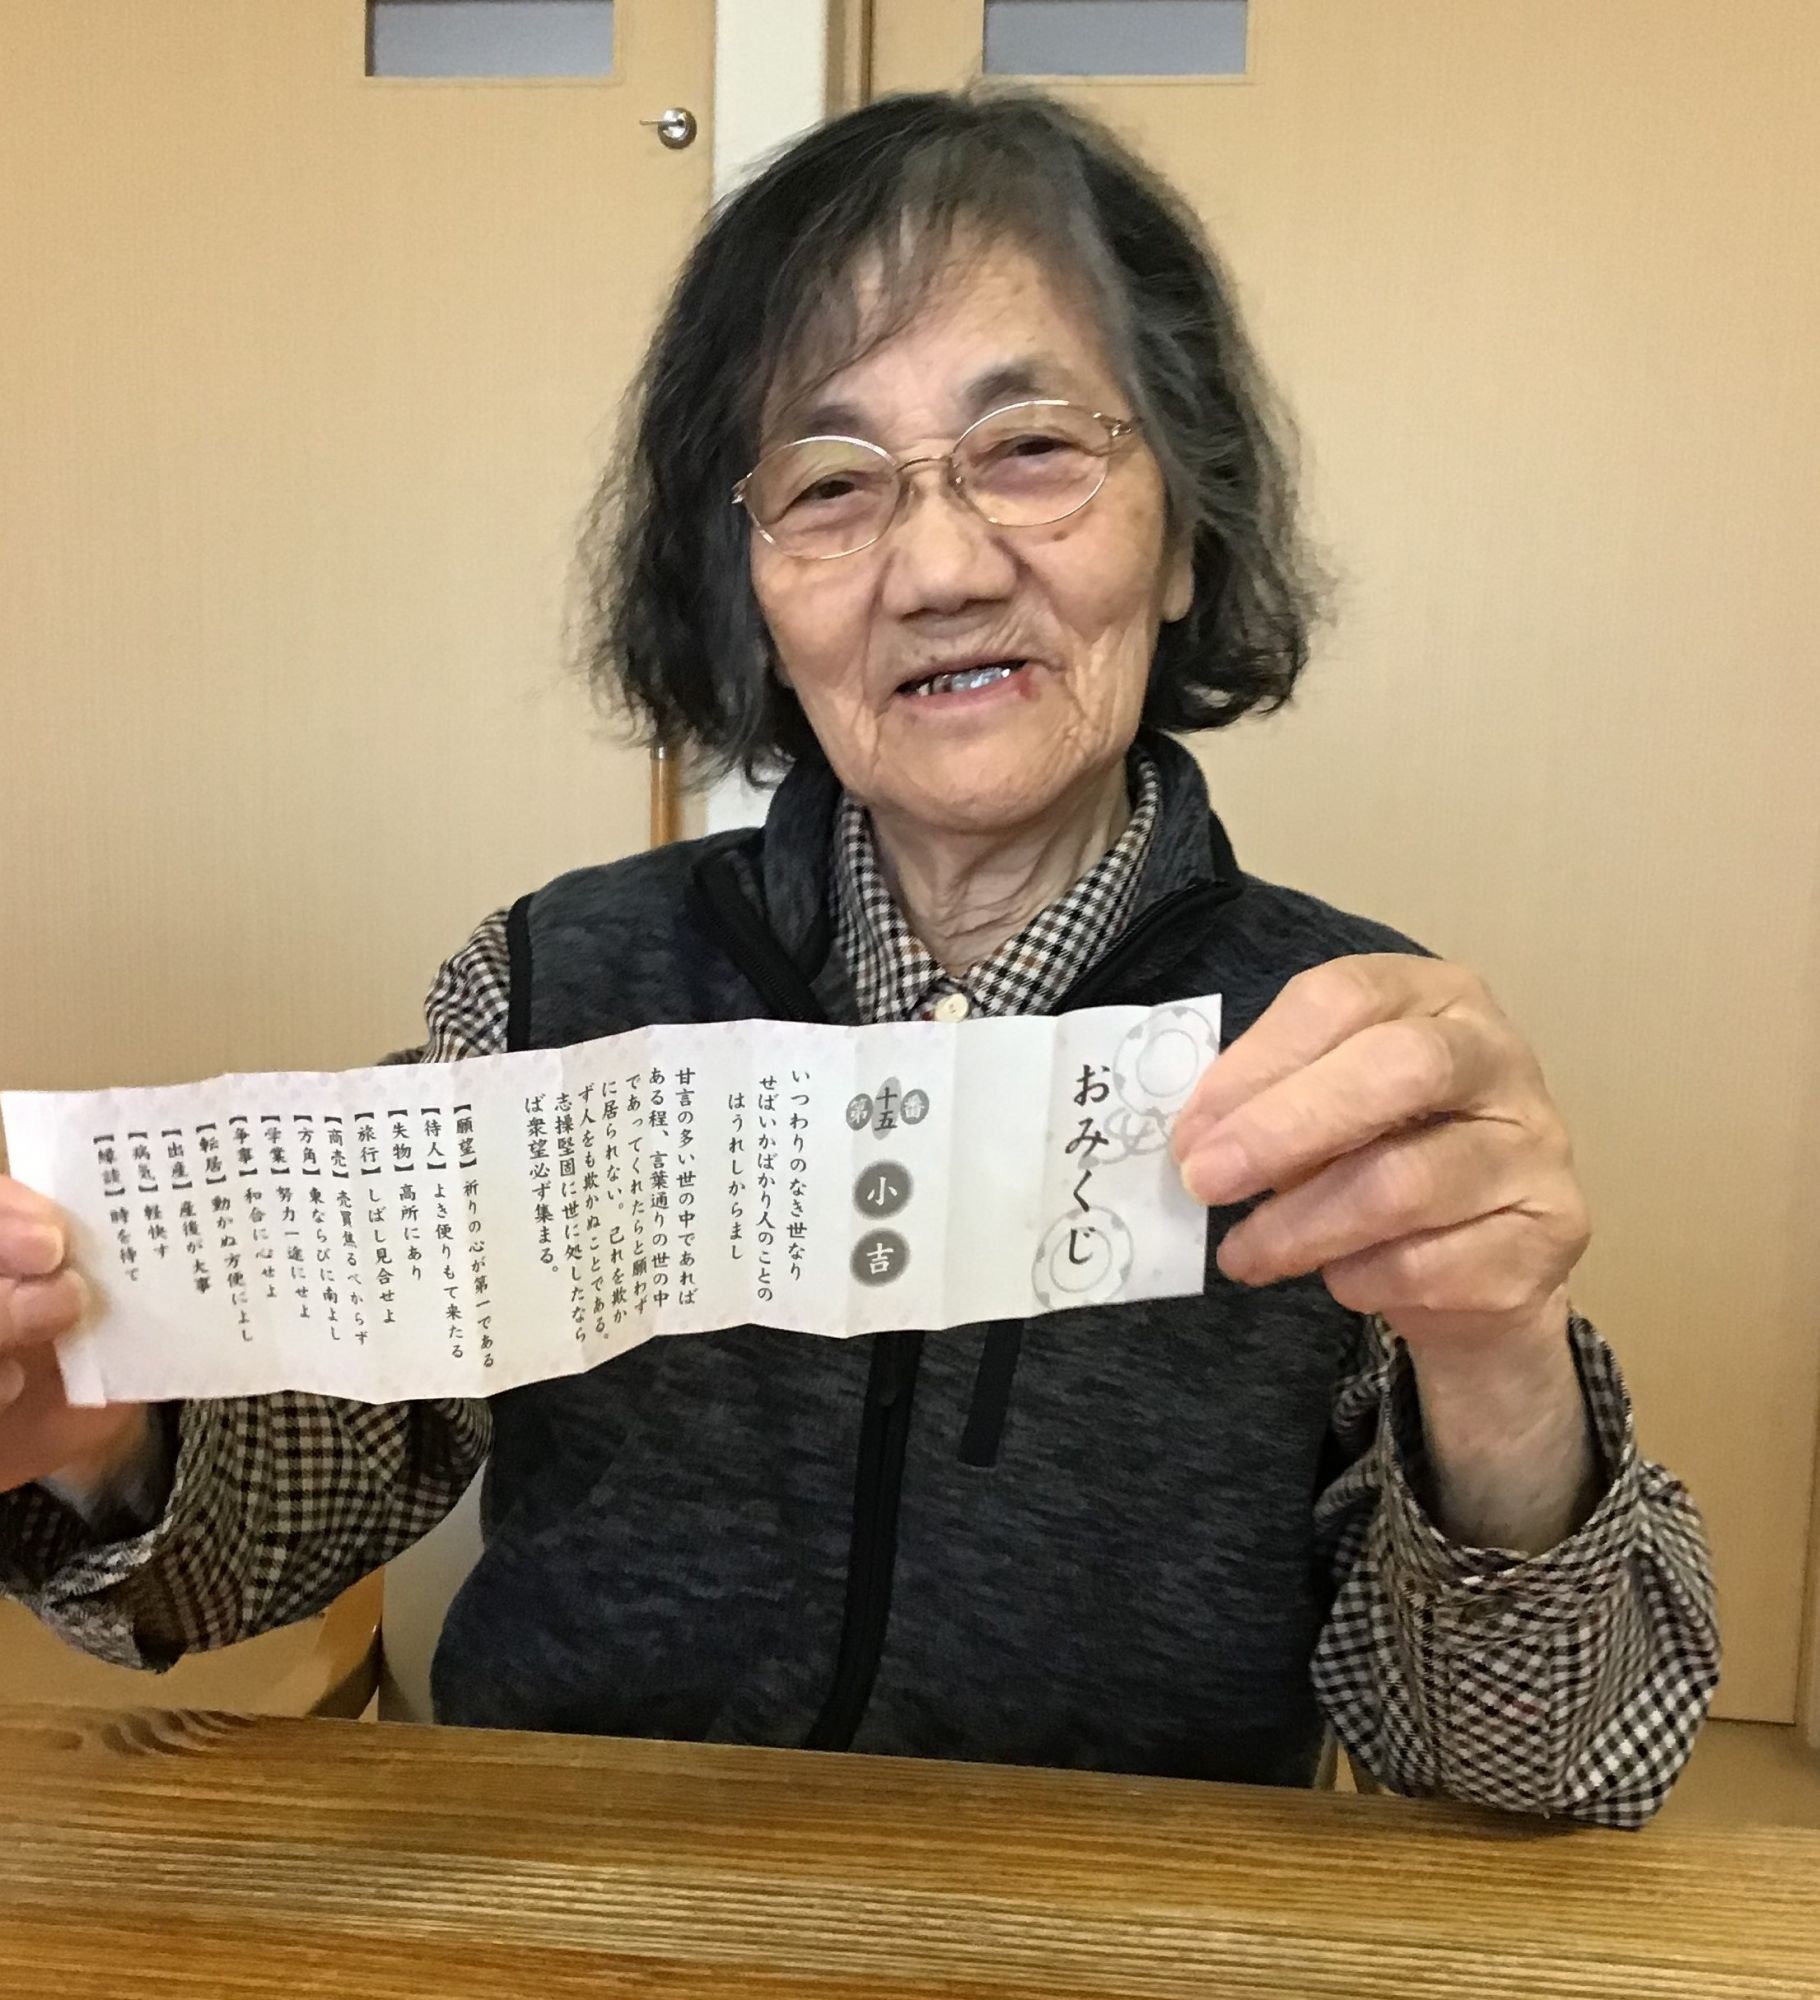 おみくじ
第十五番
小吉
いつわりのなき世なり
せばいかばかり人のことの
はうれしからまし
甘言の多い世の中であれば
ある程、言葉通りの世の中
であってくれたらと願わず
に居られない。己れを欺か
ず人をも欺かぬことである。
志操堅固に世に処したなら
ば衆望必ず集まる。
【願望】祈りの心が第一である
【待人】よき便りもて来たる
【失物】高所にあり
【旅行】しばし見合せよ
【商売】売買焦るべからず
【方角】東ならびに南よし
【学業】努力一途にせよ
【争事】和合に心せよ
【転居】動かぬ方便によし
【出産】産後が大事
【病気】軽快す
【縁談】時を待て